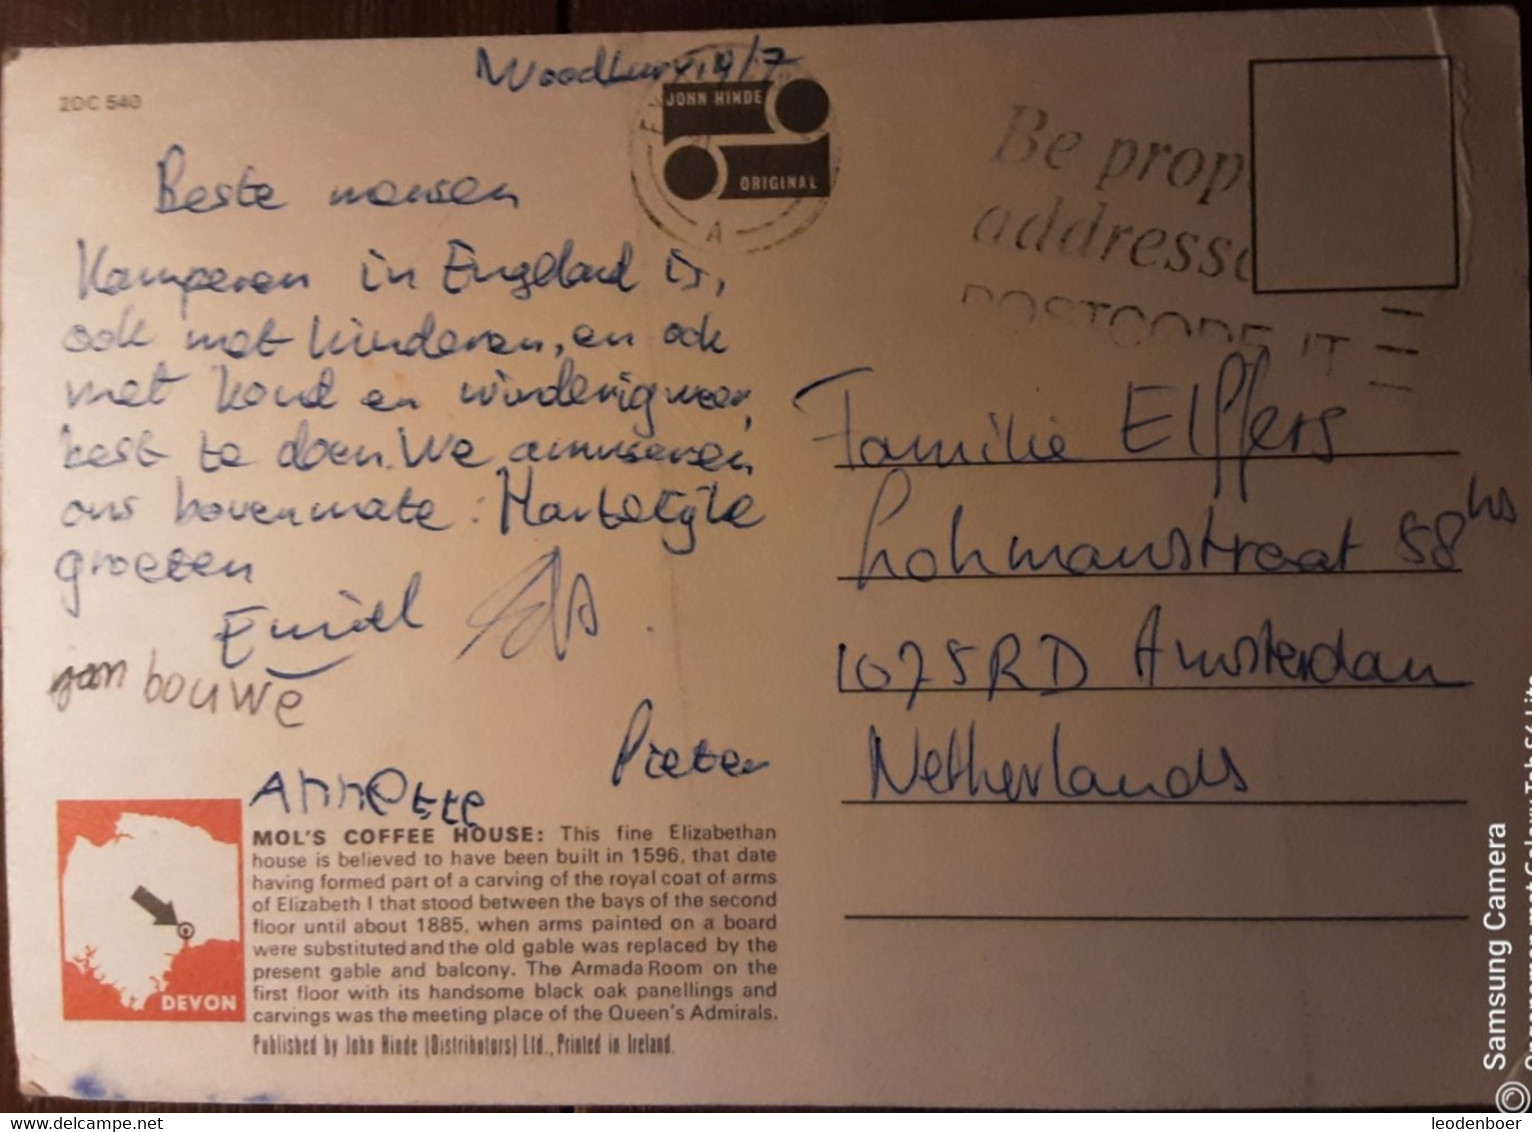 Woodbury 19/7
2DC 540
JOHN HINDE
ORIGINAL
A
Be prop
addresse
POSTCODE IT
Beste mensen
Kamperen in Engeland is,
ook met kinderen, en ook
met koud en winderig weer,
best te doen. We amuseren
ons bovenmate: Hartelijke
groeten
Emiel
jan bouwe
Pieter
Annette
Familie Elffers
Lohmanstraat 58 hs
1075RD Amsterdam
Netherlands
MOL'S COFFEE HOUSE: This fine Elizabethan
house is believed to have been built in 1596, that date
having formed part of a carving of the royal coat of arms
of Elizabeth I that stood between the bays of the second
floor until about 1885, when arms painted on a board
were substituted and the old gable was replaced by the
present gable and balcony. The Armada Room on the
first floor with its handsome black oak panellings and
carvings was the meeting place of the Queen's Admirals.
Published by John Hinde (Distributors) Ltd., Printed in Ireland.
DEVON
Samsung Camera
Opgenomen met Galaxy Tab S6 Lite
leodenboer